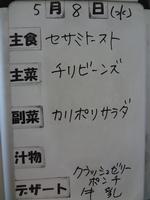 5月8日(水)
主食 セサミトースト
主菜 チリビーンズ
副菜 カリポリサラダ
汁物
デザート クラッシュゼリー
ポンチ
牛乳